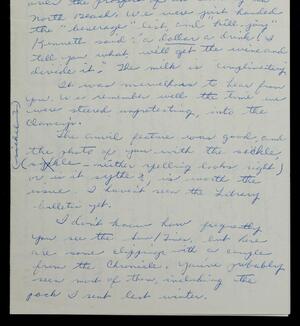 North Beach. We were just handed
the "beverage" list, and "fill-ying"
Kenneth said: "a dollar a drink! I
tell you what, will get the wine and
divide it." The milk is
It was marvellous to hear from
you. We remember well the time we
were steered unprotesting, into the
The anvil feature was good, and
the photo of you with the seckle,
(sickle)
(seckle - neither spelling looks right)
or is it sythe?, is worth the
issue. I haven't seen the Library
bulletin yet.
I don't know how frequently
you see the but here
are some clippings with a couple
from the Chronicle. You've probably
seen most of them, including the
pack I sent last winter.